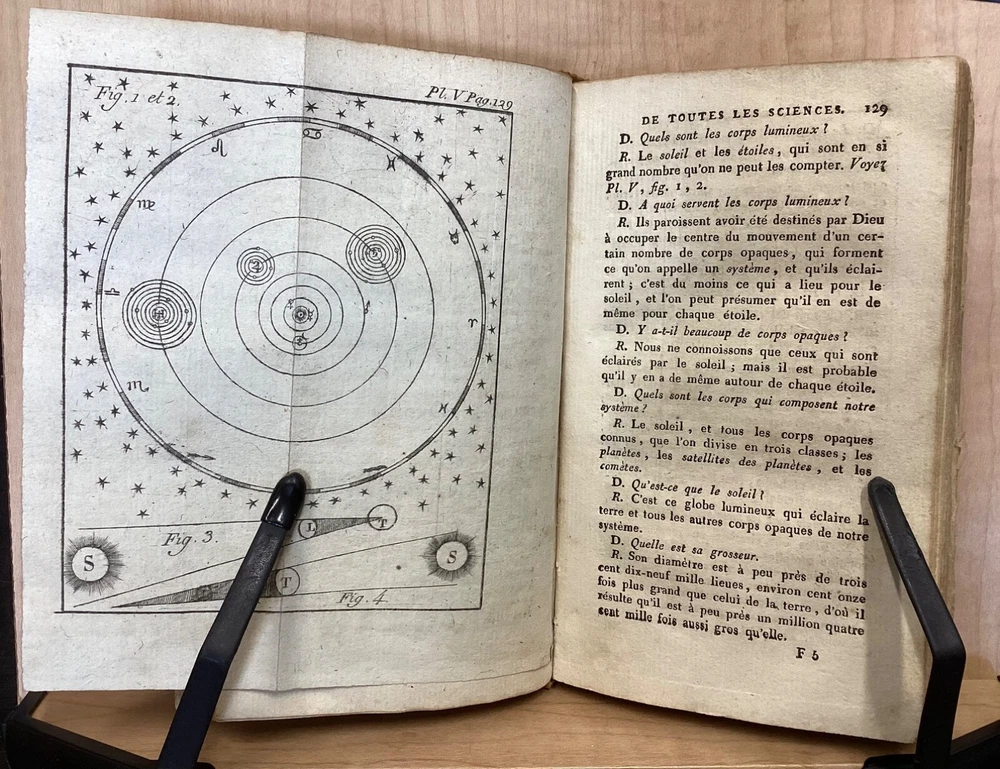 Fig. 1 et 2.
Pl. V Pag. 129
♋
♌
♍
♎
♏
♈
♓
H
L
T
Fig. 3.
S
S
T
Fig. 4.
DE TOUTES LES SCIENCES. 129
D. Quels sont les corps lumineux ?
R. Le soleil et les étoiles, qui sont en si
grand nombre qu'on ne peut les compter. Voyez
Pl. V, fig. 1, 2.
D. A quoi servent les corps lumineux ?
R. Ils paroissent avoir été destinés par Dieu
à occuper le centre du mouvement d'un cer-
tain nombre de corps opaques, qui forment
ce qu'on appelle un système, et qu'ils éclai-
rent ; c'est du moins ce qui a lieu pour le
soleil, et l'on peut présumer qu'il en est de
même pour chaque étoile.
D. Y a-t-il beaucoup de corps opaques ?
R. Nous ne connoissons que ceux qui sont
éclairés par le soleil ; mais il est probable
qu'il y en a de même autour de chaque étoile.
D. Quels sont les corps qui composent notre
système ?
R. Le soleil, et tous les corps opaques
connus, que l'on divise en trois classes ; les
planètes, les satellites des planètes, et les
comètes.
D. Qu'est-ce que le soleil ?
R. C'est ce globe lumineux qui éclaire la
terre et tous les autres corps opaques de notre
système.
D. Quelle est sa grosseur.
R. Son diamètre est à peu près de trois
cent dix-neuf mille lieues, environ cent onze
fois plus grand que celui de la terre, d'où il
résulte qu'il est à peu près un million quatre
cent mille fois aussi gros qu'elle.
F 5